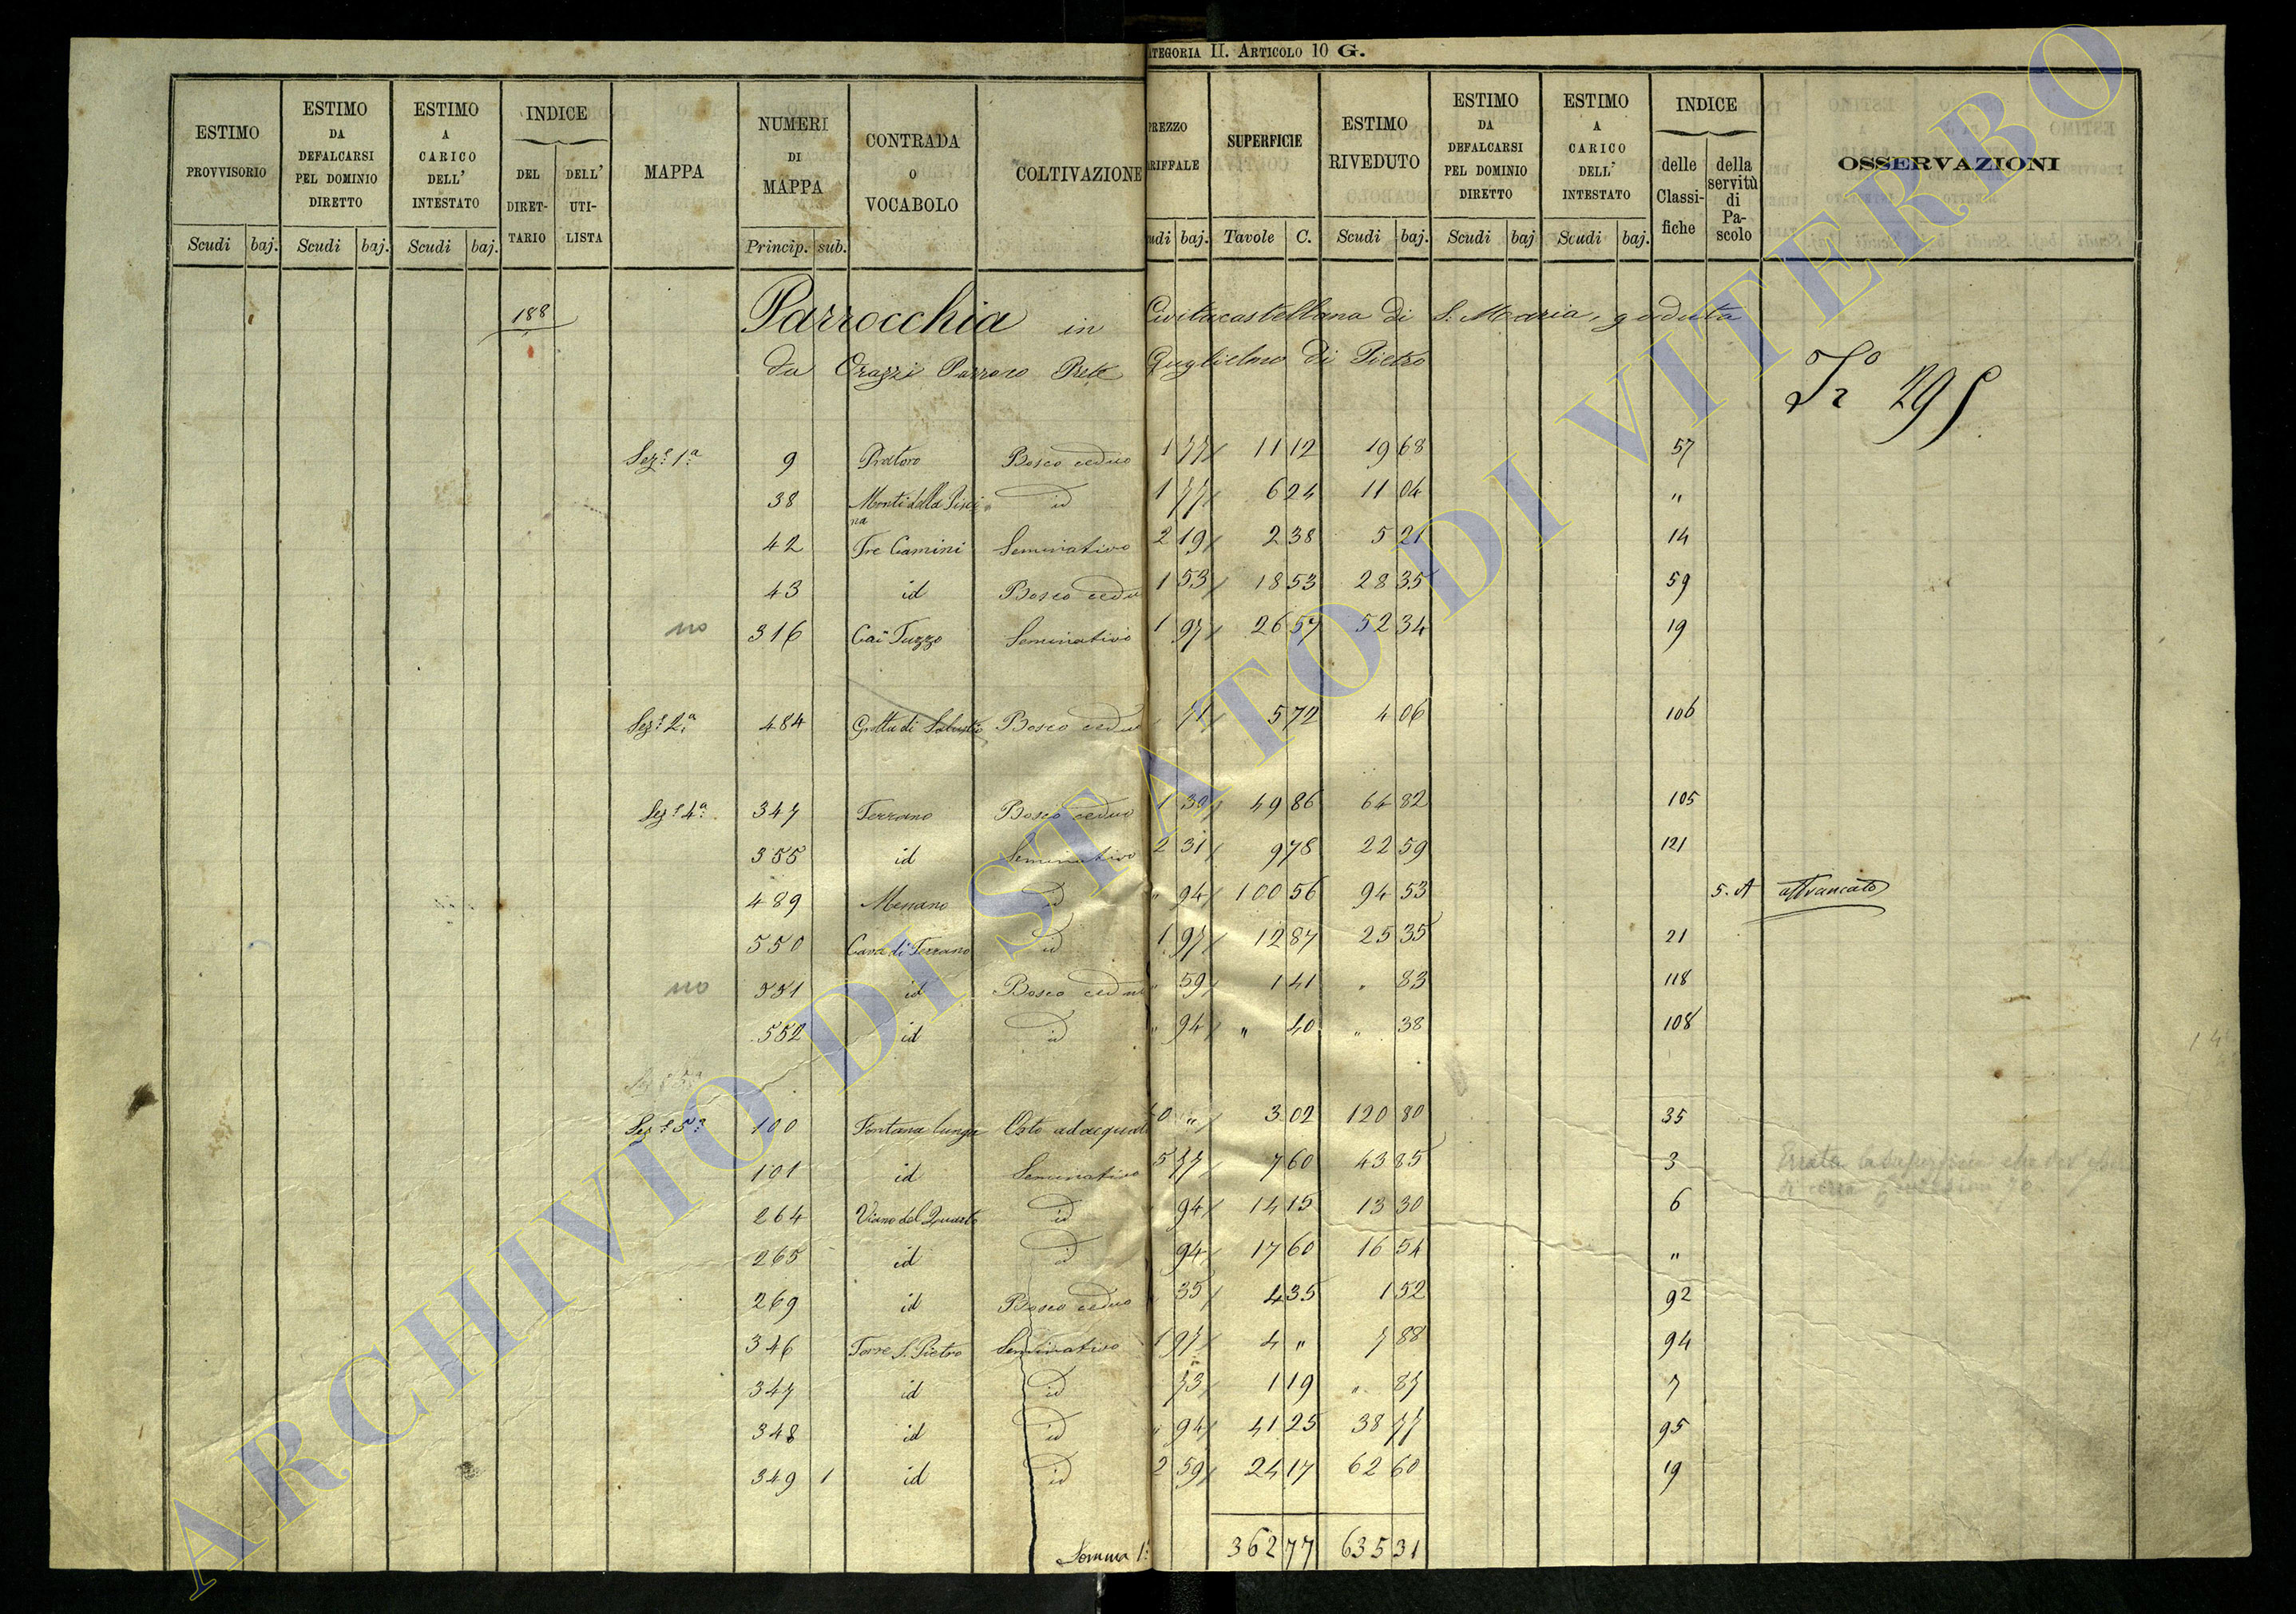 ATEGORIA II. ARTICOLO 10 G.
ESTIMO PROVVISORIO Scudi baj. ESTIMO DA DEFALCARSI PEL DOMINIO DIRETTO Scudi baj. ESTIMO A CARICO DELL' INTESTATO Scudi baj. INDICE DEL DIRET-TARIO DELL' UTI-LISTA MAPPA NUMERI DI MAPPA Princip. sub. CONTRADA O VOCABOLO COLTIVAZIONE PREZZO RIFFALE udi baj. SUPERFICIE Tavole C. ESTIMO RIVEDUTO Scudi baj. ESTIMO DA DEFALCARSI PEL DOMINIO DIRETTO Scudi baj ESTIMO A CARICO DELL' INTESTATO Scudi baj. INDICE delle Classi-fiche della servitù di Pa-scolo OSSERVAZIONI
188 Parrocchia in Civitacastellana di S. Maria, goduta
da Orazzi Parroco Prete Guglielmo di Pietro
295
Sez.e 1.a 9 Pratoro Bosco ceduo 1 77 11 12 19 68 57
38 Monti della Piscina id 1 77 6 24 11 04 "
42 Tre Camini Seminativo 2 19 2 38 5 21 14
43 id Bosco ceduo 1 53 18 53 28 35 59
no 316 Cai Tuzzo Seminativo 1 97 26 57 52 34 19
Sez.e 2.a 484 Grotta di Bosco ceduo 71 5 72 4 06 106
Sez.e 4.a 347 Terrano Bosco ceduo 1 30 49 86 64 82 105
355 id Seminativo 2 31 9 78 22 59 121
489 Menano id " 94 100 56 94 53 5. A affrancato
550 Cava di Terrano id 1 97 12 87 25 35 21
no 551 id Bosco ceduo " 59 1 41 " 83 118
552 id id " 94 " 40 " 38 108
Sez.e 5.a
Sez.e 5.a 100 Fontana lunga Orto adacquat 40 " 3 02 120 80 35
101 id Seminativo 5 77 7 60 43 85 3 Errata la superficie che
264 Piano del Quarto id 94 14 15 13 30 6
265 id id 94 17 60 16 54 "
269 id Bosco ceduo 35 4 35 1 52 92
346 Torre S. Pietro Seminativo 1 97 4 " 7 88 94
347 id id 73 1 19 " 87 7
348 id id " 94 41 25 38 77 95
349 1 id id 2 59 24 17 62 60 19
Somma 1.a 362 77 635 31
ARCHIVIO DI STATO DI VITERBO